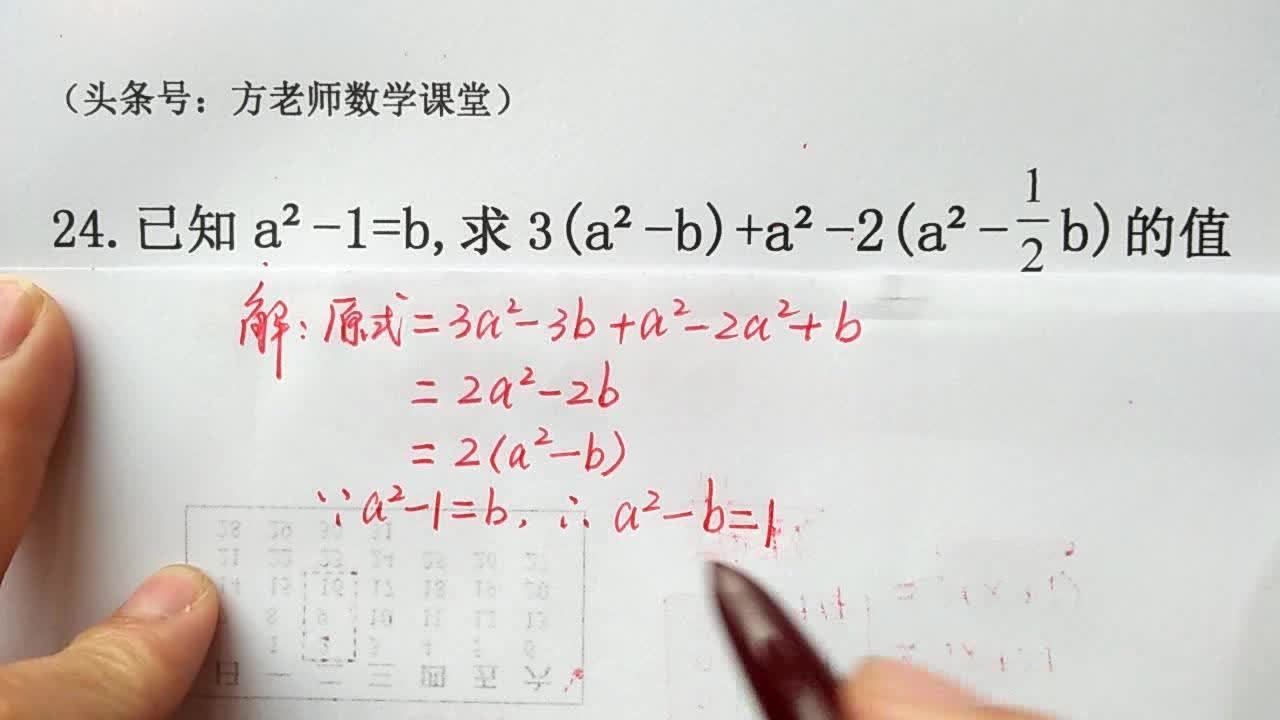 （头条号：方老师数学课堂）
24.已知 a²-1=b,求 3(a²-b)+a²-2(a²-\frac{1}{2}b)的值
解：原式=3a²-3b+a²-2a²+b
=2a²-2b
=2(a²-b)
∵a²-1=b, ∴a²-b=1